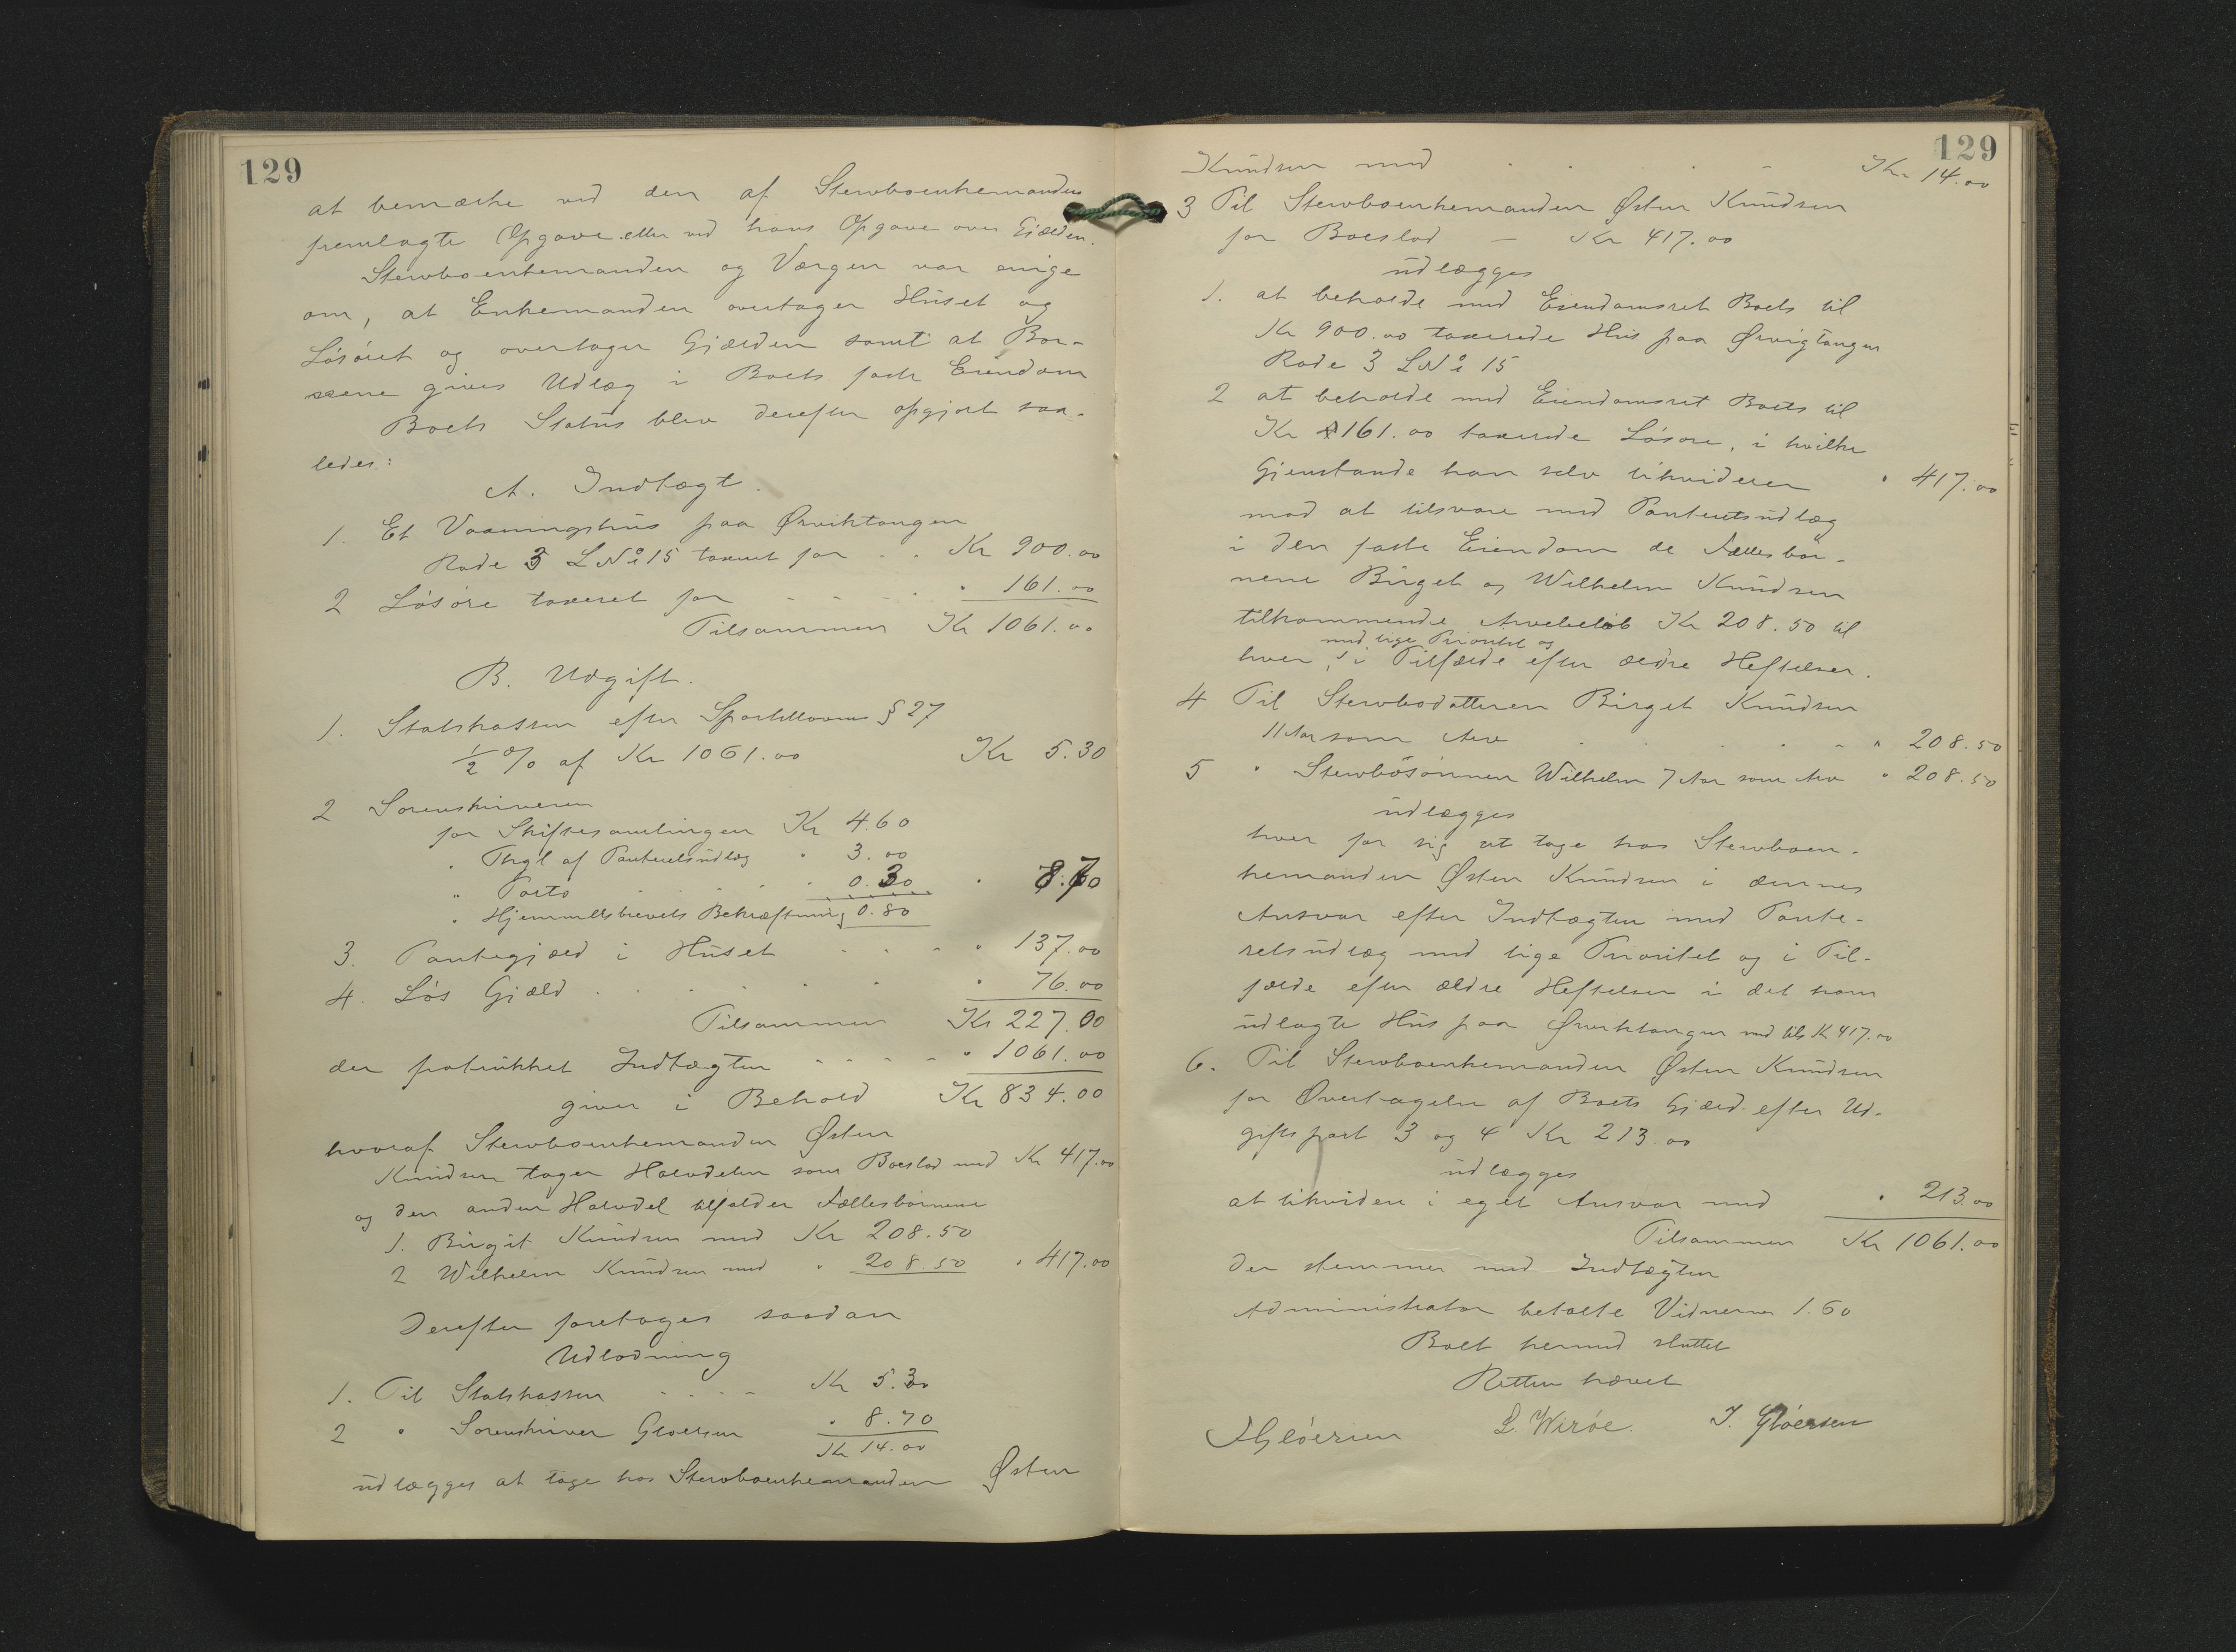 129
at bemærke ved den af Stervboenkemanden
fremlagte Opgave eller ved hans Opgave over Gjælden.
Stervboenkemanden ogVærgen var enige
om, at Enkemanden overtager Huset og
Løsøret og overtager Gjælden samt at Bør-
nene gives Udlæg i Boets faste Eiendom
Boets Status blev derefter opgjort saa-
ledes:
A. Indtægt.
1. Et Vaaningshus paa Ørviktangen
Rode 3 L№ 15 taxeret for . . Kr 900.00
2 Løsøre taxeret for - - - - " 161.00
Tilsammen Kr 1061.00
B. Udgift.
1. Statskassen efter Sportellovens § 27
½ % af Kr 1061.00 Kr 5.30
2 Sorenskriveren
for Skiftesamlingen Kr 4.60
" Thgl af Panteretsudlæg " 3.00
" Porto . . . . " 0.30 " 8.70
" Hjemmelsbrevets Bekræftning 0.80
3. Pantegjæld i Huset - - - - " 137.00
4. Løs Gjæld . . . . . " 76.00
Tilsammen Kr 227.00
der fratrukket Indtægten - - - - " 1061.00
giver i Behold Kr 834.00
hvoraf Stervboenkemanden Østen
Knudsen tager Halvdelen som Boeslod med Kr 417.00
og den anden Halvdel tilfalder Fællesbørnene
1. Birgit Knudsen med Kr 208.50
2 Wilhelm Knudsen med " 208.50 " 417.00
Derefter foretages saadan
Udlodning
1. Til Statskassen - - - - Kr 5.30
2 " Sorenskriver Gløersen " 8.70
Kr 14.00
udlægges at tage hos Stervboenkemanden Østen
129
Knudsen med . . . . - Kr 14.00
3 Til Stervboenkemanden Østen Knudsen
for Boeslod — Kr 417.00
udlægges
1. at beholde med Eiendomsret Boets til
Kr 900.00 taxerede Hus paa Ørvigtangen
Rode 3 L№ 15
2 at beholde med Eiendomsret Boets til
Kr 161.00 taxerede Løsøre, i hvilke
Gjenstande han selv likviderer " 417.00
mod at tilsvare med Panteretsudlæg
i den faste Eiendom de Fællesbør-
nene Birget og Wilhelm Knudsen
tilkommende Arvebeløb Kr 208.50 til
med lige Prioritet og
hver, i Tilfælde efter ældre Heftelser.
4 Til Stervbodatteren Birget Knudsen
11 Aar som Arv . . . . - " 208.50
5 " Stervbosønnen Wilhelm 7 Aar som Arv " 208.50
udlægges
hver for sig at tage hos Stervboen-
kemanden Østen Knudsen i dennes
Ansvar efter Indtægten med Pante-
retsudlæg med lige Prioritet og i Til-
fælde efter ældre Heftelser i det ham
udlagte Hus paa Ørviktangen med tils Kr 417.00
6. Til Stervboenkemanden Østen Knudsen
for Overtagelse af Boets Gjæld efter Ud-
giftspost 3 og 4 Kr 213.00
udlægges
at likvidere i eget Ansvar med " 213.00
Tilsammen Kr 1061.00
der stemmer med Indtægten
Administrator betalte Vidnerne 1.60
Boet hermed sluttet
Retten hævet
AGløersen L. Wirøe. J. Gløersen